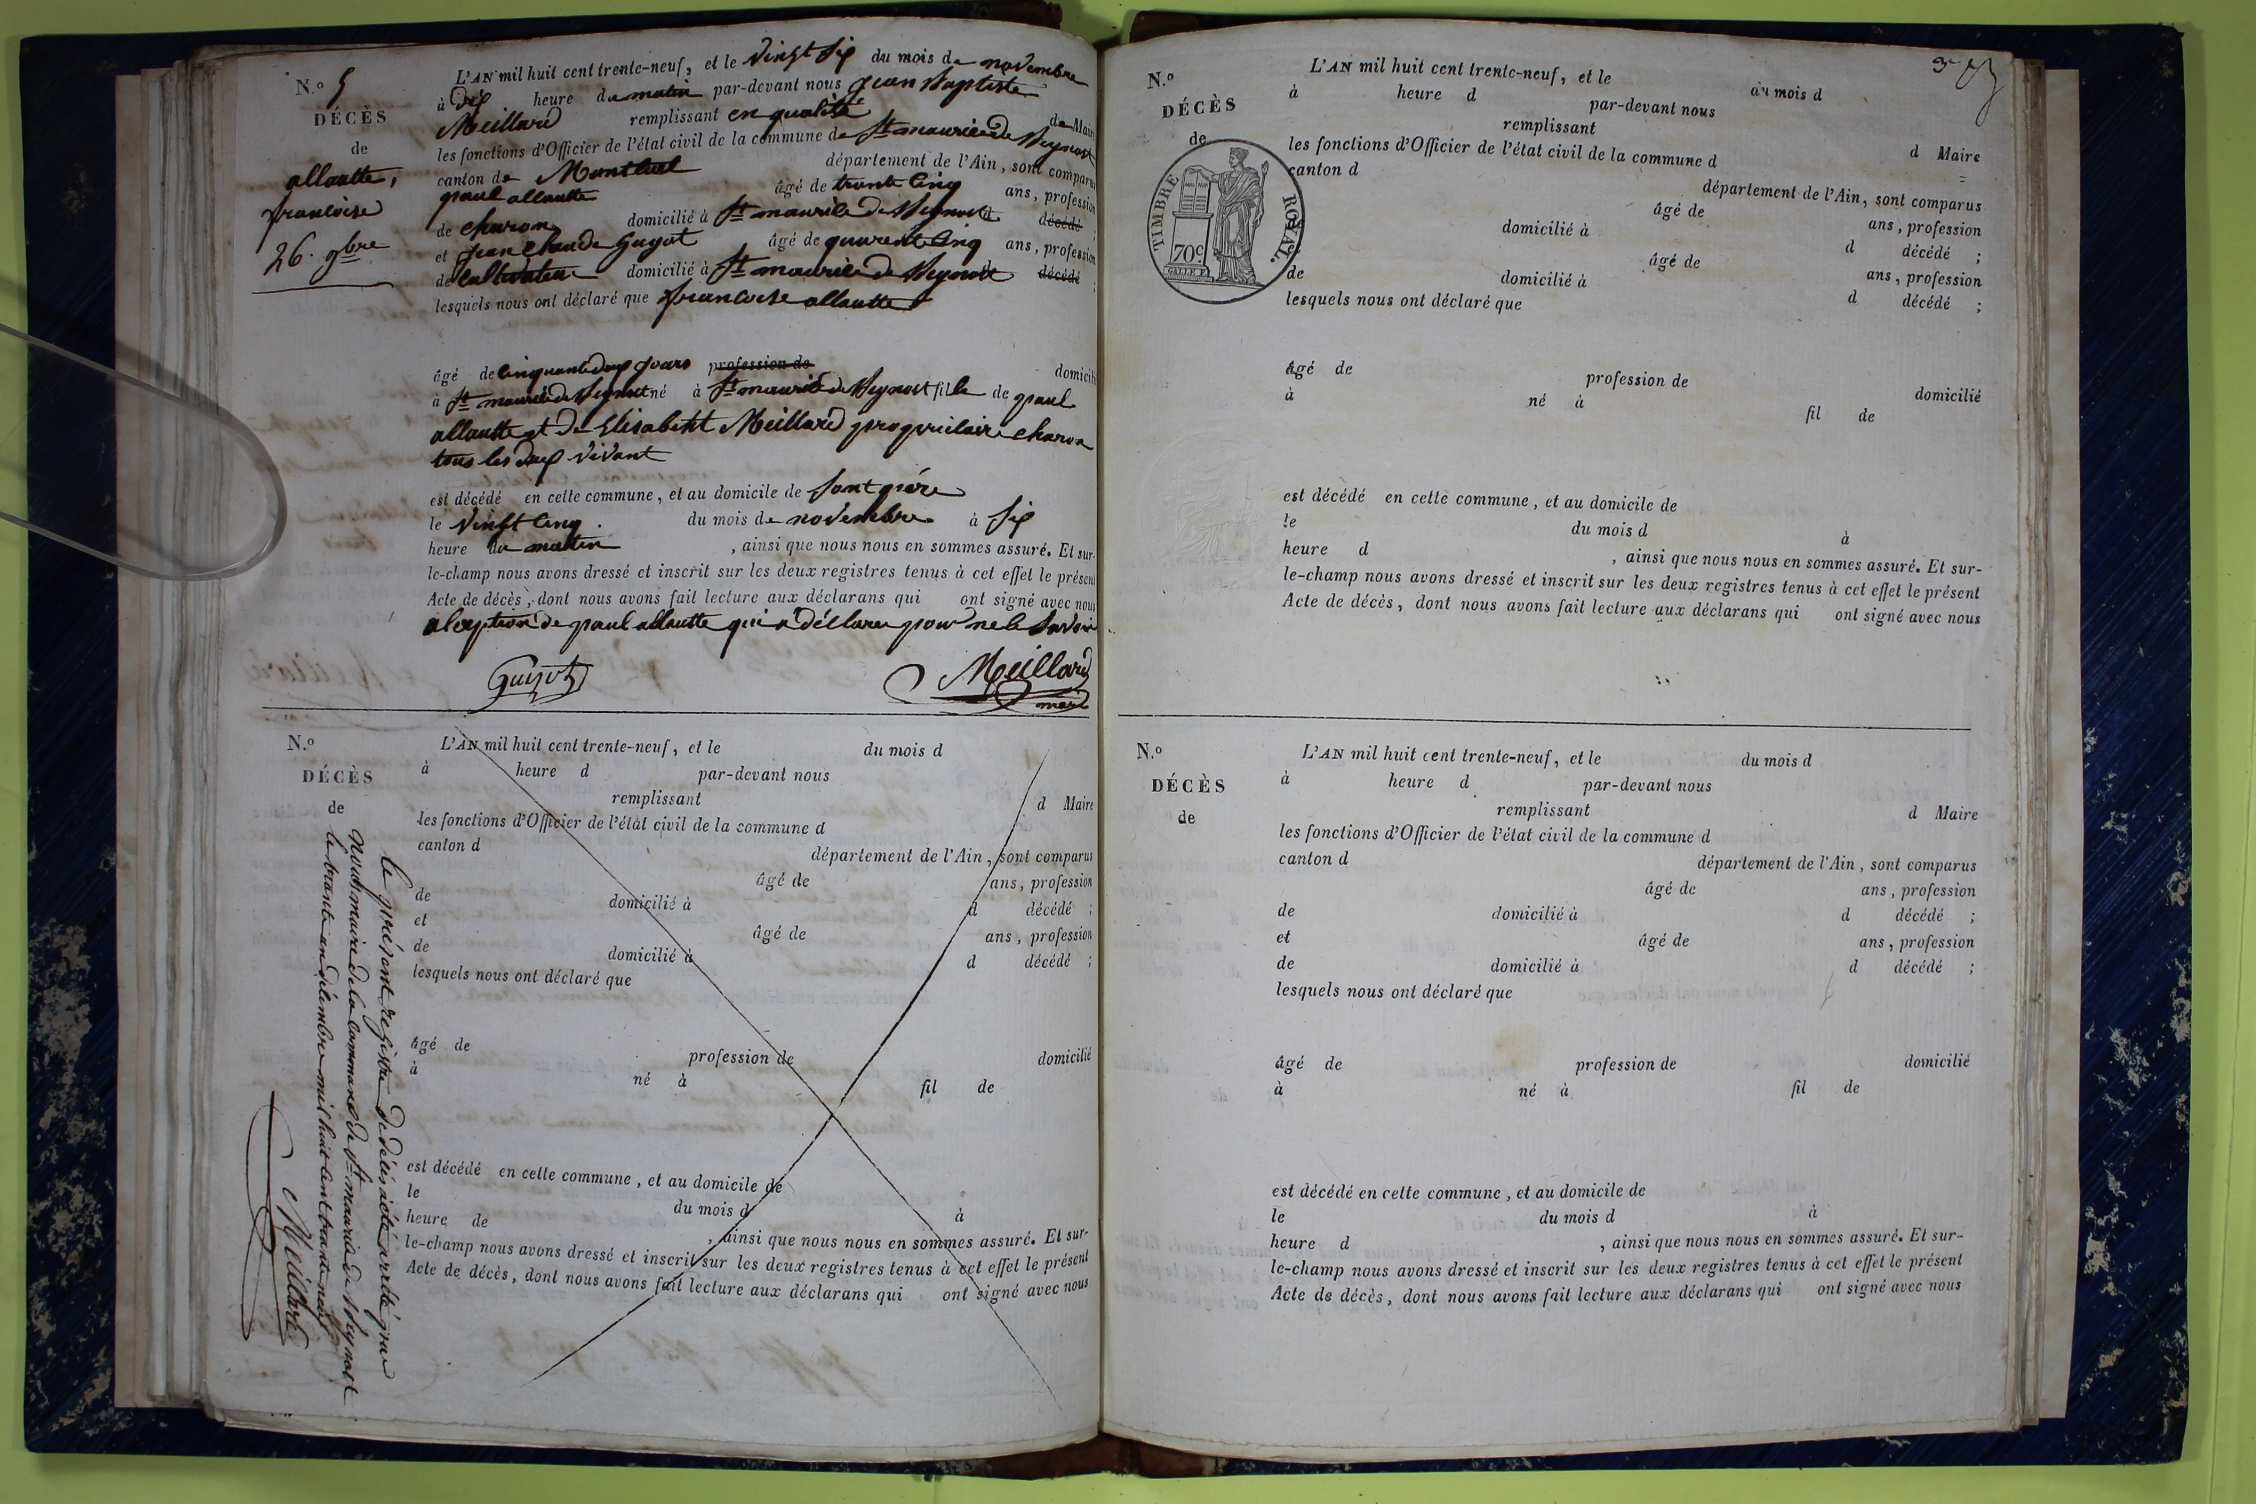 N.º 5
DÉCÈS
de
allautte,
françoise
26. 9bre
L'AN mil huit cent trente-neuf, et le vingt six du mois de novembre
à dix heure du matin par-devant nous jean Baptiste
Meillard remplissant en qualité de Maire
les fonctions d'Officier de l'état civil de la commune de St maurice de Beynost
canton de Montluel département de l'Ain, sont comparus
paul allautte âgé de trante cinq ans, profession
de charon domicilié à St maurice de Beynost d décédé ;
et jean claude guyot âgé de quarente cinq ans, profession
de cultivateur domicilié à St maurice de Beynost d décédé ;
lesquels nous ont déclaré que françoise allautte
âgé de cinquante deux jours profession de domicilié
à St maurice de Beynost né à St maurice de Beynost fille de paul
allautte et de Elisabeht Meillard propriétaire charon
tous les deux vivant
est décédé en cette commune, et au domicile de sont père
le vingt cinq du mois de novembre à six
heure du matin, ainsi que nous nous en sommes assuré. Et sur-
le-champ nous avons dressé et inscrit sur les deux registres tenus à cet effet le présent
Acte de décès, dont nous avons fait lecture aux déclarans qui ont signé avec nous
a l'exption de paul allautte qui a déclaré pour ne le savoir
Meillard
maire
N.º
DÉCÈS
de
L'AN mil huit cent trente-neuf, et le du mois d
à heure d par-devant nous
remplissant d Maire
les fonctions d'Officier de l'état civil de la commune d
canton d département de l'Ain, sont comparus
âgé de ans, profession
de domicilié à d décédé ;
et âgé de ans, profession
de domicilié à d décédé ;
lesquels nous ont déclaré que
âgé de profession de domicilié
à né à fil de
est décédé en cette commune, et au domicile de
le du mois d à
heure de , ainsi que nous nous en sommes assuré. Et sur-
le-champ nous avons dressé et inscrit sur les deux registres tenus à cet effet le présent
Acte de décès, dont nous avons fait lecture aux déclarans qui ont signé avec nous
le présent registre de décès a été arrêté par
nous maire de la commune de St maurice de Beynost
le trante un décembre mil huit cent trante neuf
Meillard
N.º
DÉCÈS
de
TIMBRE ROYAL.
70c.
L'AN mil huit cent trente-neuf, et le du mois d
à heure d par-devant nous
remplissant d Maire
les fonctions d'Officier de l'état civil de la commune d
canton d département de l'Ain, sont comparus
âgé de ans, profession
domicilié à d décédé ;
âgé de ans, profession
de domicilié à d décédé ;
lesquels nous ont déclaré que
âgé de profession de domicilié
à né à fil de
est décédé en cette commune, et au domicile de
le du mois d à
heure d , ainsi que nous nous en sommes assuré. Et sur-
le-champ nous avons dressé et inscrit sur les deux registres tenus à cet effet le présent
Acte de décès, dont nous avons fait lecture aux déclarans qui ont signé avec nous
N.º
DÉCÈS
de
L'AN mil huit cent trente-neuf, et le du mois d
à heure d par-devant nous
remplissant d Maire
les fonctions d'Officier de l'état civil de la commune d
canton d département de l'Ain, sont comparus
âgé de ans, profession
de domicilié à d décédé ;
et âgé de ans, profession
de domicilié à d décédé ;
lesquels nous ont déclaré que
âgé de profession de domicilié
à né à fil de
est décédé en cette commune, et au domicile de
le du mois d à
heure d , ainsi que nous nous en sommes assuré. Et sur-
le-champ nous avons dressé et inscrit sur les deux registres tenus à cet effet le présent
Acte de décès, dont nous avons fait lecture aux déclarans qui ont signé avec nous